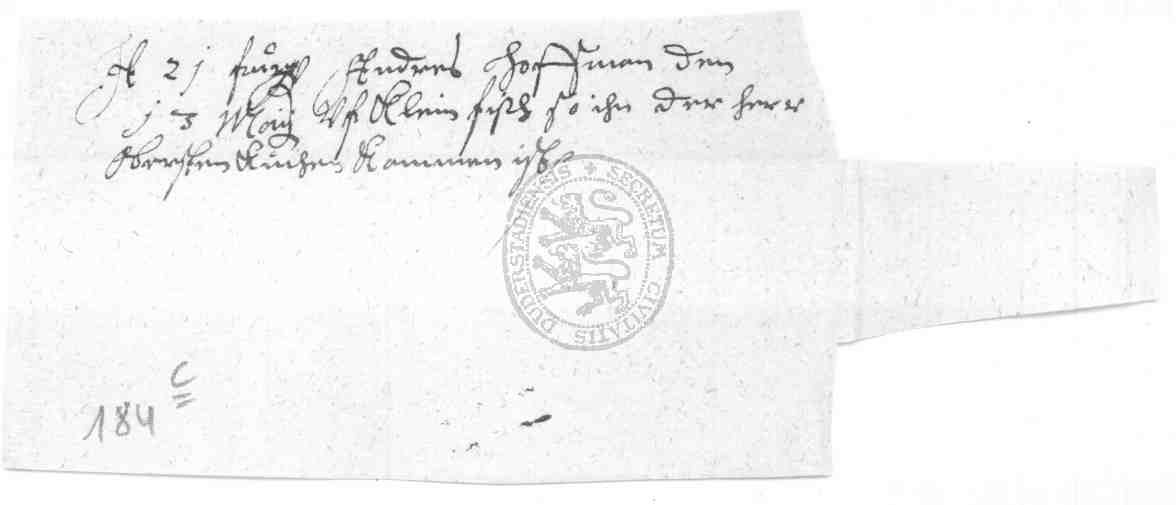 21 Andres Hoffman den
13 Maij Vf Klein fisch so ihn der herr
Obersten Kuchen Kommen ist
SECRETUM CIVITATIS DUDERSTADIENSIS
C
184